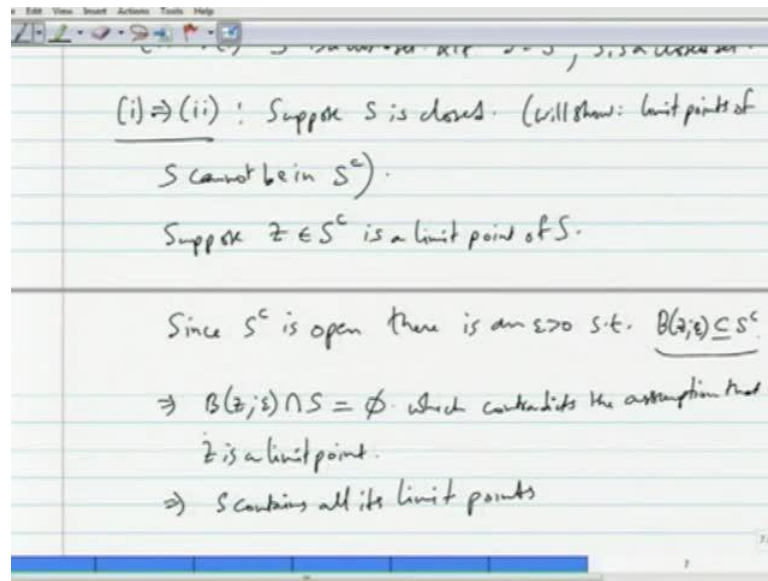 Edit View Insert Actions Tools Help
(i) ⇒ (ii) : Suppose S is closed. (will show: limit points of
S cannot be in Sᶜ).
Suppose z ∈ Sᶜ is a limit point of S.
Since Sᶜ is open there is an ε>0 s.t. B(z;ε) ⊆ Sᶜ
⇒ B(z;ε) ∩ S = ∅. which contradicts the assumption that
z is a limit point.
⇒ S contains all its limit points
7